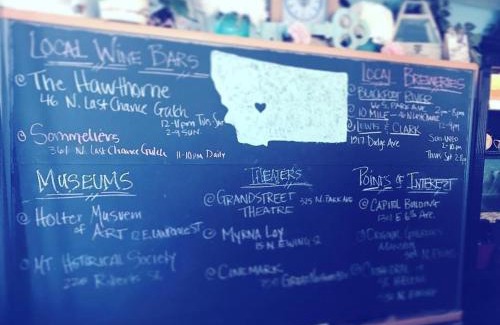 Local Wine Bars
@ The Hawthorne
46 N. Last Chance Gulch
12-11pm Tues-Sat
2-9 SUN.
@ Sommeliers
361 N. Last Chance Gulch 11-10pm Daily
Local Breweries
@ Blackfoot River
66 S. Park Ave 2pm-8pm
@ 10 Mile - 48 N. Last Chance
@ Lewis & Clark 12-9pm
1517 Dodge Ave
Museums
@ Holter Museum
of Art 12 E. Lawrence St
MT Historical Society
225 Roberts St.
Theaters
@ Grandstreet 325 N. Park Ave
Theatre
@ Myrna Loy
15 N. Ewing St
@ Cinemark
Points of Interest
@ Capitol Building
1301 E 6th Ave.
@ Original Governor's
Mansion
@ Cathedral of
St Helena